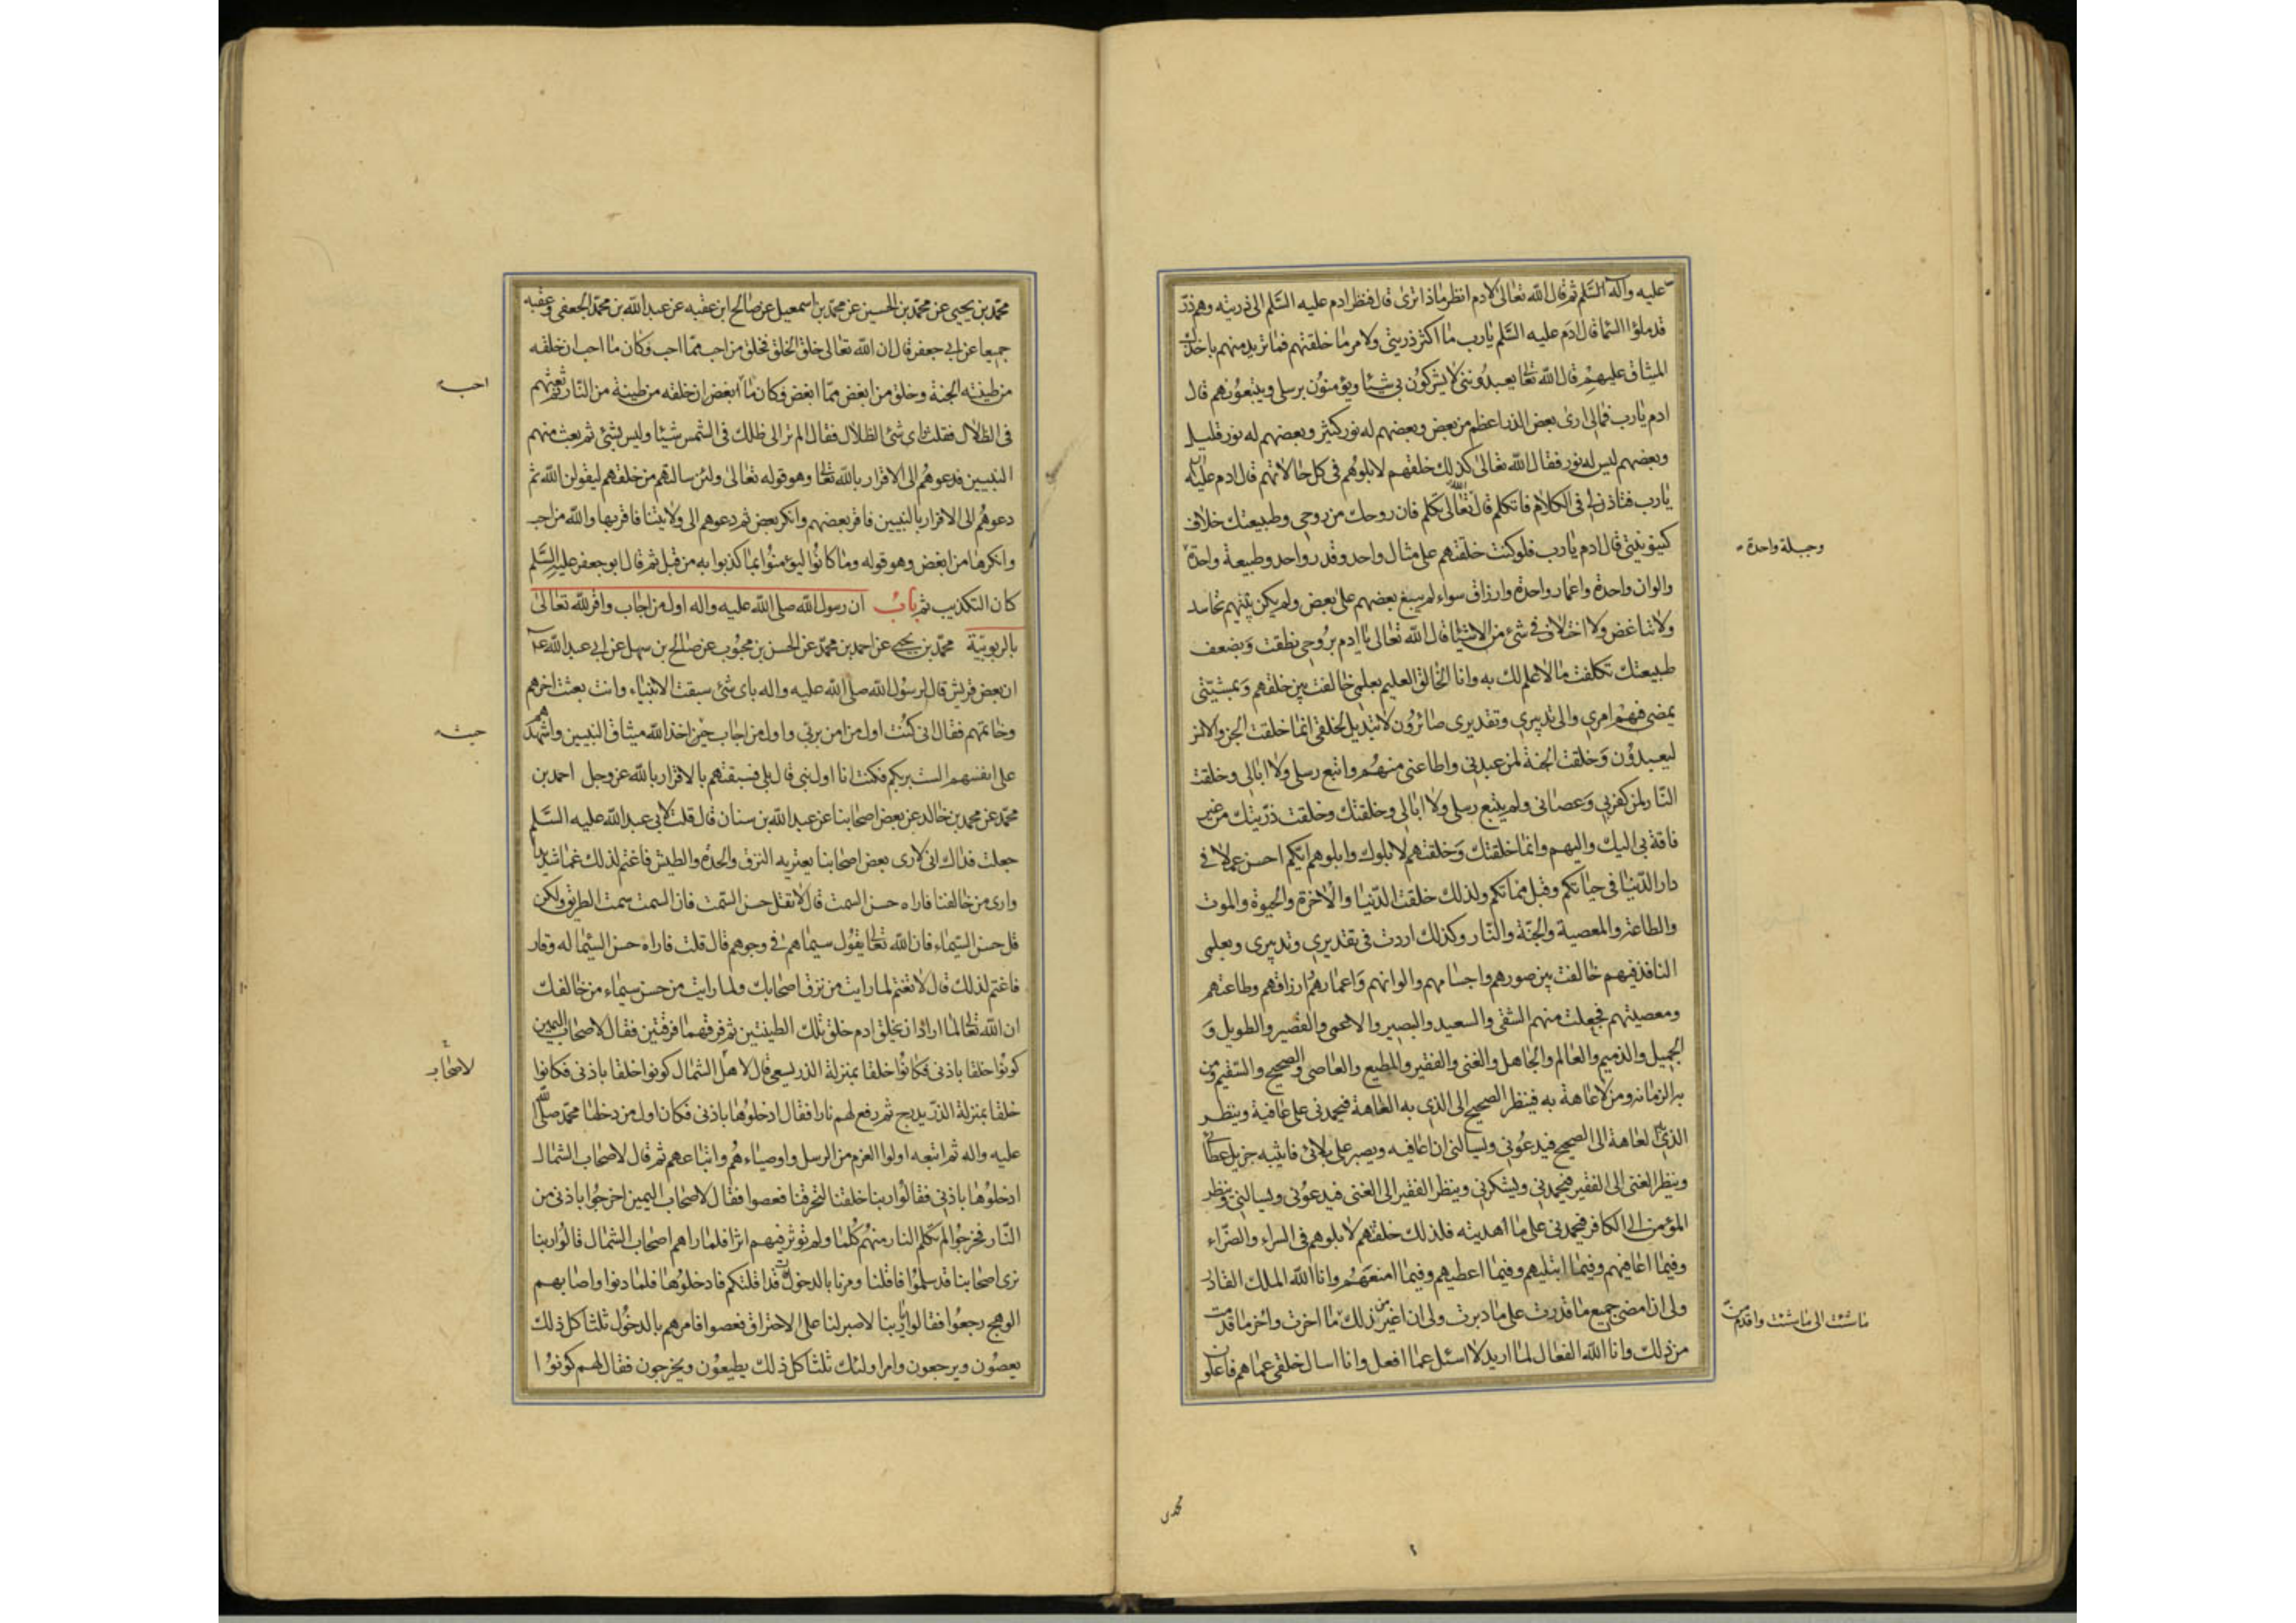 عليه وآله السّلم ثم قال الله تعالى لادم انظر ماذا ترى قال فنظر ادم عليه السّلم الى ذريته وهم ذرّ
قد ملؤا السّما قال ادم عليه السّلم يارب ما اكثر ذريتى ولامر ما خلقتهم فما تريد منهم باخذك
الميثاق عليهم قال الله تعالى يعبدوننى لا يشركون بى شيئا ويؤمنون برسلى ويتبعونهم قال
ادم يارب فمالى ارى بعض الذر اعظم من بعض وبعضهم له نور كثير وبعضهم له نور قليل
وبعضهم ليس له نور فقال الله تعالى كذلك خلقتهم لابلوهم فى كل حالاتهم قال ادم عليه
يارب فتاذن لى فى الكلام فاتكلم قال الله تعالى تكلم فان روحك من روحى وطبيعتك خلاف
كينونيتى قال ادم يارب فلو كنت خلقتهم على مثال واحد وقدر واحد وطبيعة واحدة
وجبلة واحدة
والوان واحدة واعمار واحدة وارزاق سواء لم يبغ بعضهم على بعض ولم يكن بينهم تحاسد
ولا تباغض ولا اختلاف فى شئ من الاشيا قال الله تعالى يا ادم بروحى نطقت وبضعف
طبيعتك تكلفت ما لا علم لك به وانا الخالق العليم بعلمى خالفت بين خلقهم وبمشيّتى
يمضى فيهم امرى والى تدبيرى وتقديرى صائرون لا تبديل لخلقى انما خلقت الجن والانس
ليعبدون وخلقت الجنة لمن عبدنى واطاعنى منهم واتبع رسلى ولا ابالى وخلقت
النّار لمن كفر بى وعصانى ولم يتبع رسلى ولا ابالى وخلقتك وخلقت ذرّيتك من غير
فاقة بى اليك واليهم وانما خلقتك وخلقتهم لابلوك وابلوهم ايّكم احسن عملا فى
دار الدّنيا فى حياتكم وقبل مماتكم ولذلك خلقت الدّنيا والاخرة والحيوة والموت
والطاعة والمعصية والجنّة والنّار وكذلك اردت فى تقديرى وتدبيرى وبعلمى
النافذ فيهم خالفت بين صورهم واجسامهم والوانهم واعمارهم وارزاقهم وطاعتهم
ومعصيتهم فجعلت منهم الشقى والسعيد والبصير والاعمى والقصير والطويل و
الجميل والذميم والعالم والجاهل والغنى والفقير والمطيع والعاصى والصحيح والسّقيم ومن
به الزمانة ومن لا عاهة به فينظر الصحيح الى الذى به العاهة فيحمدنى على عافية وينظر
الذى به العاهة الى الصحيح فيدعونى ويسالنى ان اعافيه ويصبر على بلائى فاثيبه جزيل عطائى
وينظر الغنى الى الفقير فيحمدنى ويشكرنى وينظر الفقير الى الغنى فيدعونى ويسالنى وينظر
المؤمن الى الكافر فيحمدنى على ما اهديته فلذلك خلقتهم لابلوهم فى السراء والضّراء
وفيما اعافيهم وفيما ابتليهم وفيما اعطيهم وفيما امنعهم وانا الله الملك القادر
ولى ان امضى جميع ما قدرت على ما دبرت ولى ان اغير من ذلك ما اخرت واخر ما قدمت
ما شئت الى ما شئت واقدم من
من ذلك وانا الله الفعال لما اريد لا اسئل عما افعل وانا اسال خلقى عما هم فاعلون
محمدبن
محمّد بن يحيى عن محمّد بن الحسين عن محمّد بن اسمعيل عن صالح ابن عقبه عن عبدالله بن محمّد الجعفى وعقبه
جميعا عن ابى جعفر قال ان الله تعالى خلق الخلق فخلق من احب ممّا احب وكان ما احب ان خلقه
من طينته الجنة وخلق من ابغض ممّا ابغض وكان ما ابغض ان خلقه من طينة من النّار ثم بعثهم
احب
فى الظلال فقلت واى شئ الظلال فقال الم تر الى ظلك فى الشمس شيئا وليس بشئ ثم بعث منهم
النبيين فدعوهم الى الاقرار بالله تعالى وهو قوله تعالى ولئن سالتهم من خلقهم ليقولن الله ثم
دعوهم الى الاقرار بالنبيين فاقر بعضهم وانكر بعض ثم دعوهم الى ولايتنا فاقر بها والله من احب
وانكرها من ابغض وهو قوله وما كانوا ليؤمنوا بما كذبوا به من قبل ثم قال ابو جعفر عليه السّلم
كان التكذيب ثم باب ان رسول الله صلى الله عليه واله اول من اجاب واقر لله تعالى
بالربوبيّة محمّد بن يحيى عن احمد بن محمّد عن الحسن بن محبوب عن صالح بن سهل عن ابى عبدالله ع
ان بعض قريش قال لرسول الله صلى الله عليه واله باى شئ سبقت الانبياء وانت بعثت اخرهم
وخاتمهم فقال انى كنت اول من امن بربّى واول من اجاب حين اخذ الله ميثاق النبيين واشهدهم
حيث
على انفسهم الست بربكم فكنت انا اول نبى قال بلى فسبقتهم بالاقرار بالله عز وجل احمد بن
محمّد عن محمد بن خالد عن بعض اصحابنا عن عبدالله بن سنان قال قلت لابى عبدالله عليه السّلم
جعلت فداك انى لارى بعض اصحابنا يعتريه النزق والحدة والطيش فاغتم لذلك غما شديدا
وارى من خالفنا فاراه حسن السمت قال لا تقل حسن السّمت فان السمت سمت الطريق ولكن
قل حسن السّيماء فان الله تعالى يقول سيماهم فى وجوههم قال قلت فاراه حسن السّيما له وقار
فاغتم لذلك قال لا تغتم لما رايت من نزق اصحابك ولما رايت من حسن سيماء من خالفك
ان الله تعالى لما اراد ان يخلق ادم خلق تلك الطينتين ثم فرقهما فرقتين فقال لاصحاب اليمين
كونوا خلقا باذنى فكانوا خلقا بمنزلة الذر يسعى قال لاهل الشمال كونوا خلقا باذنى فكانوا
لاصحاب
خلقا بمنزلة الذر يدرج ثم رفع لهم نارا فقال ادخلوها باذنى فكان اول من دخلها محمّد صلى الله
عليه واله ثم اتبعه اولوا العزم من الرسل واوصياءهم واتباعهم ثم قال لاصحاب الشمال
ادخلوها باذنى فقالوا ربنا خلقتنا لتحرقنا فعصوا فقال لاصحاب اليمين اخرجوا باذنى من
النّار فخرجوا لم تكلم النار منهم كلما ولم تؤثر فيهم اثرا فلما راهم اصحاب الشمال قالوا ربنا
نرى اصحابنا قد سلموا فاقلنا ومرنا بالدخول قد اقلتكم فادخلوها فلما دنوا واصابهم
الوهج رجعوا فقالوا يا ربنا لا صبر لنا على الاحتراق فعصوا فامرهم بالدخول ثلثا كل ذلك
يعصون ويرجعون وامر اولئك ثلثا كل ذلك يطيعون ويخرجون فقال لهم كونوا ا